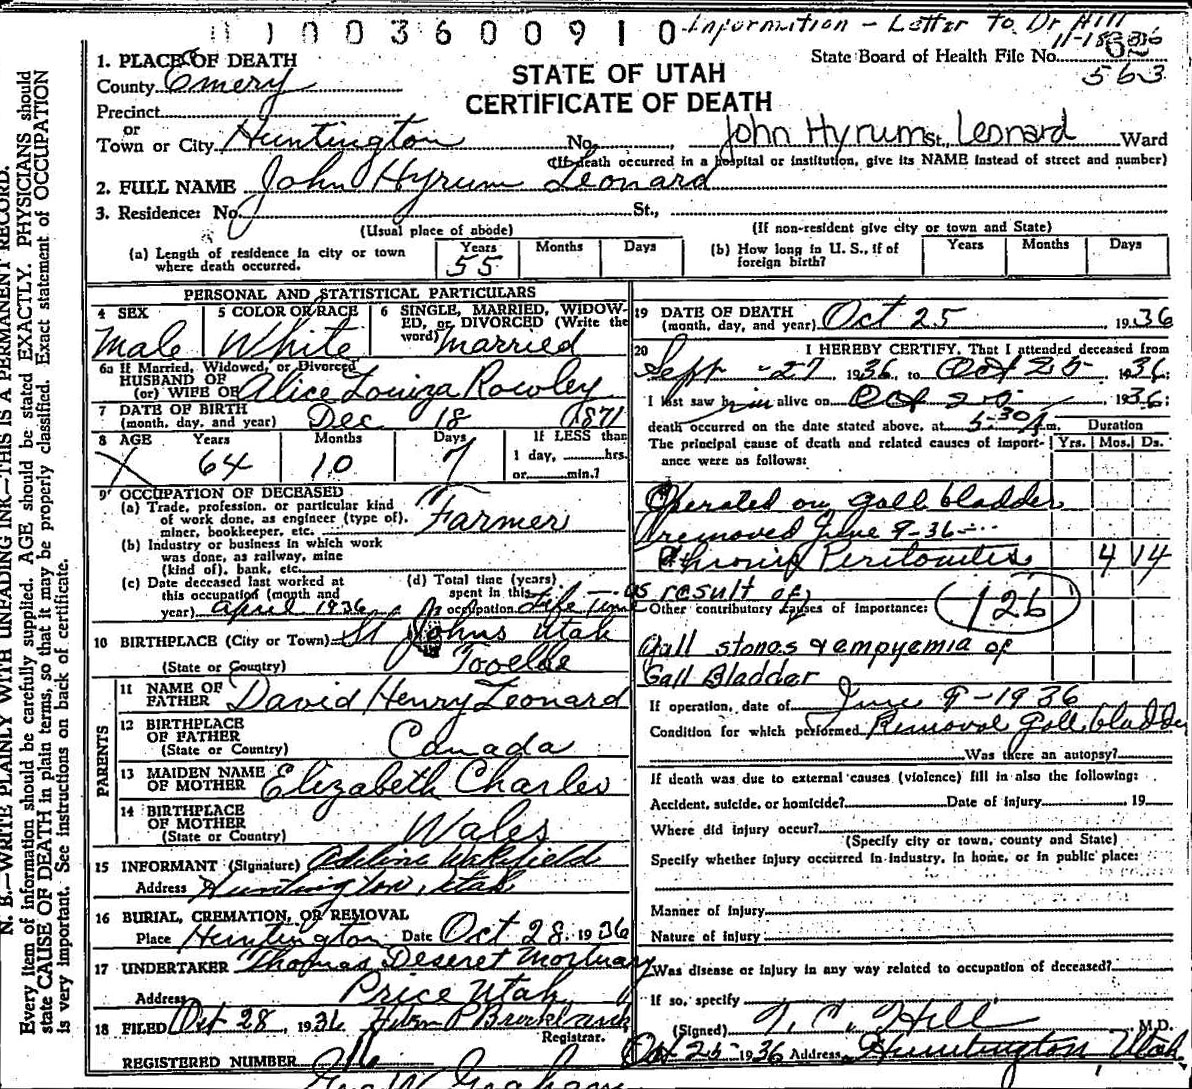 0 1 0 0 3 6 0 0 9 1 0 Information - Letter to Dr Hill
11-18-36
State Board of Health File No. 62
563
STATE OF UTAH
CERTIFICATE OF DEATH
1. PLACE OF DEATH
County Emery
Precinct
or
Town or City Huntington No. John Hyrum St., Leonard Ward
(If death occurred in a hospital or institution, give its NAME instead of street and number)
2. FULL NAME John Hyrum Leonard
3. Residence: No. St.,
(Usual place of abode) (If non-resident give city or town and State)
(a) Length of residence in city or town where death occurred. Years 55 Months Days
(b) How long in U. S., if of foreign birth? Years Months Days
PERSONAL AND STATISTICAL PARTICULARS
4 SEX Male
5 COLOR OR RACE White
6 SINGLE, MARRIED, WIDOWED, or DIVORCED (Write the word) Married
6a If Married, Widowed, or Divorced
HUSBAND OF
(or) WIFE OF Alice Louiza Rowley
7 DATE OF BIRTH
(month, day, and year) Dec 18 1871
8 AGE Years 64 Months 10 Days 7 If LESS than
1 day, hrs.
or min.?
9 OCCUPATION OF DECEASED
(a) Trade, profession, or particular kind
of work done, as engineer (type of),
miner, bookkeeper, etc. Farmer
(b) Industry or business in which work
was done, as railway, mine
(kind of), bank, etc.
(c) Date deceased last worked at
this occupation (month and
year) April 1936
(d) Total time (years)
spent in this
occupation Life Time
10 BIRTHPLACE (City or Town) St Johns Utah
(State or Country) Tooelle
PARENTS
11 NAME OF
FATHER David Henry Leonard
12 BIRTHPLACE
OF FATHER
(State or Country) Canada
13 MAIDEN NAME
OF MOTHER Elizabeth Charles
14 BIRTHPLACE
OF MOTHER
(State or Country) Wales
15 INFORMANT (Signature) Adeline Wakefield
Address Huntington, Utah
16 BURIAL, CREMATION, OR REMOVAL
Place Huntington Date Oct 28, 1936
17 UNDERTAKER Thomas Deseret Mortuary
Address Price Utah
18 FILED Oct 28, 1936
Registrar.
REGISTERED NUMBER
19 DATE OF DEATH
(month, day, and year) Oct 25, 1936
20 I HEREBY CERTIFY, That I attended deceased from
Sept - 27, 1936, to Oct 25, 1936;
I last saw him alive on Oct 25, 1936;
death occurred on the date stated above, at 5-30 A m. Duration
The principal cause of death and related causes of importance were as follows: Yrs. Mos. Ds.
Operated on gall bladder
removed June 9-36
Chronic Peritonitis 4 14
as result of
Other contributory causes of importance: 126
Gall stones & empyemia of
Gall Bladder
If operation, date of June 9-1936
Condition for which performed Removal Gall bladder
Was there an autopsy?
If death was due to external causes (violence) fill in also the following:
Accident, suicide, or homicide? Date of injury 19
Where did injury occur?
(Specify city or town, county and State)
Specify whether injury occurred in industry, in home, or in public place:
Manner of Injury
Nature of injury
Was disease or injury in any way related to occupation of deceased?
If so, specify
(Signed) T. C. Hill M.D.
Oct 25-1936 Address Huntington, Utah
N. B.—WRITE PLAINLY WITH UNFADING INK—THIS IS A PERMANENT RECORD.
Every item of information should be carefully supplied. AGE should be stated EXACTLY. PHYSICIANS should
state CAUSE OF DEATH in plain terms, so that it may be properly classified. Exact statement of OCCUPATION
is very important. See instructions on back of certificate.